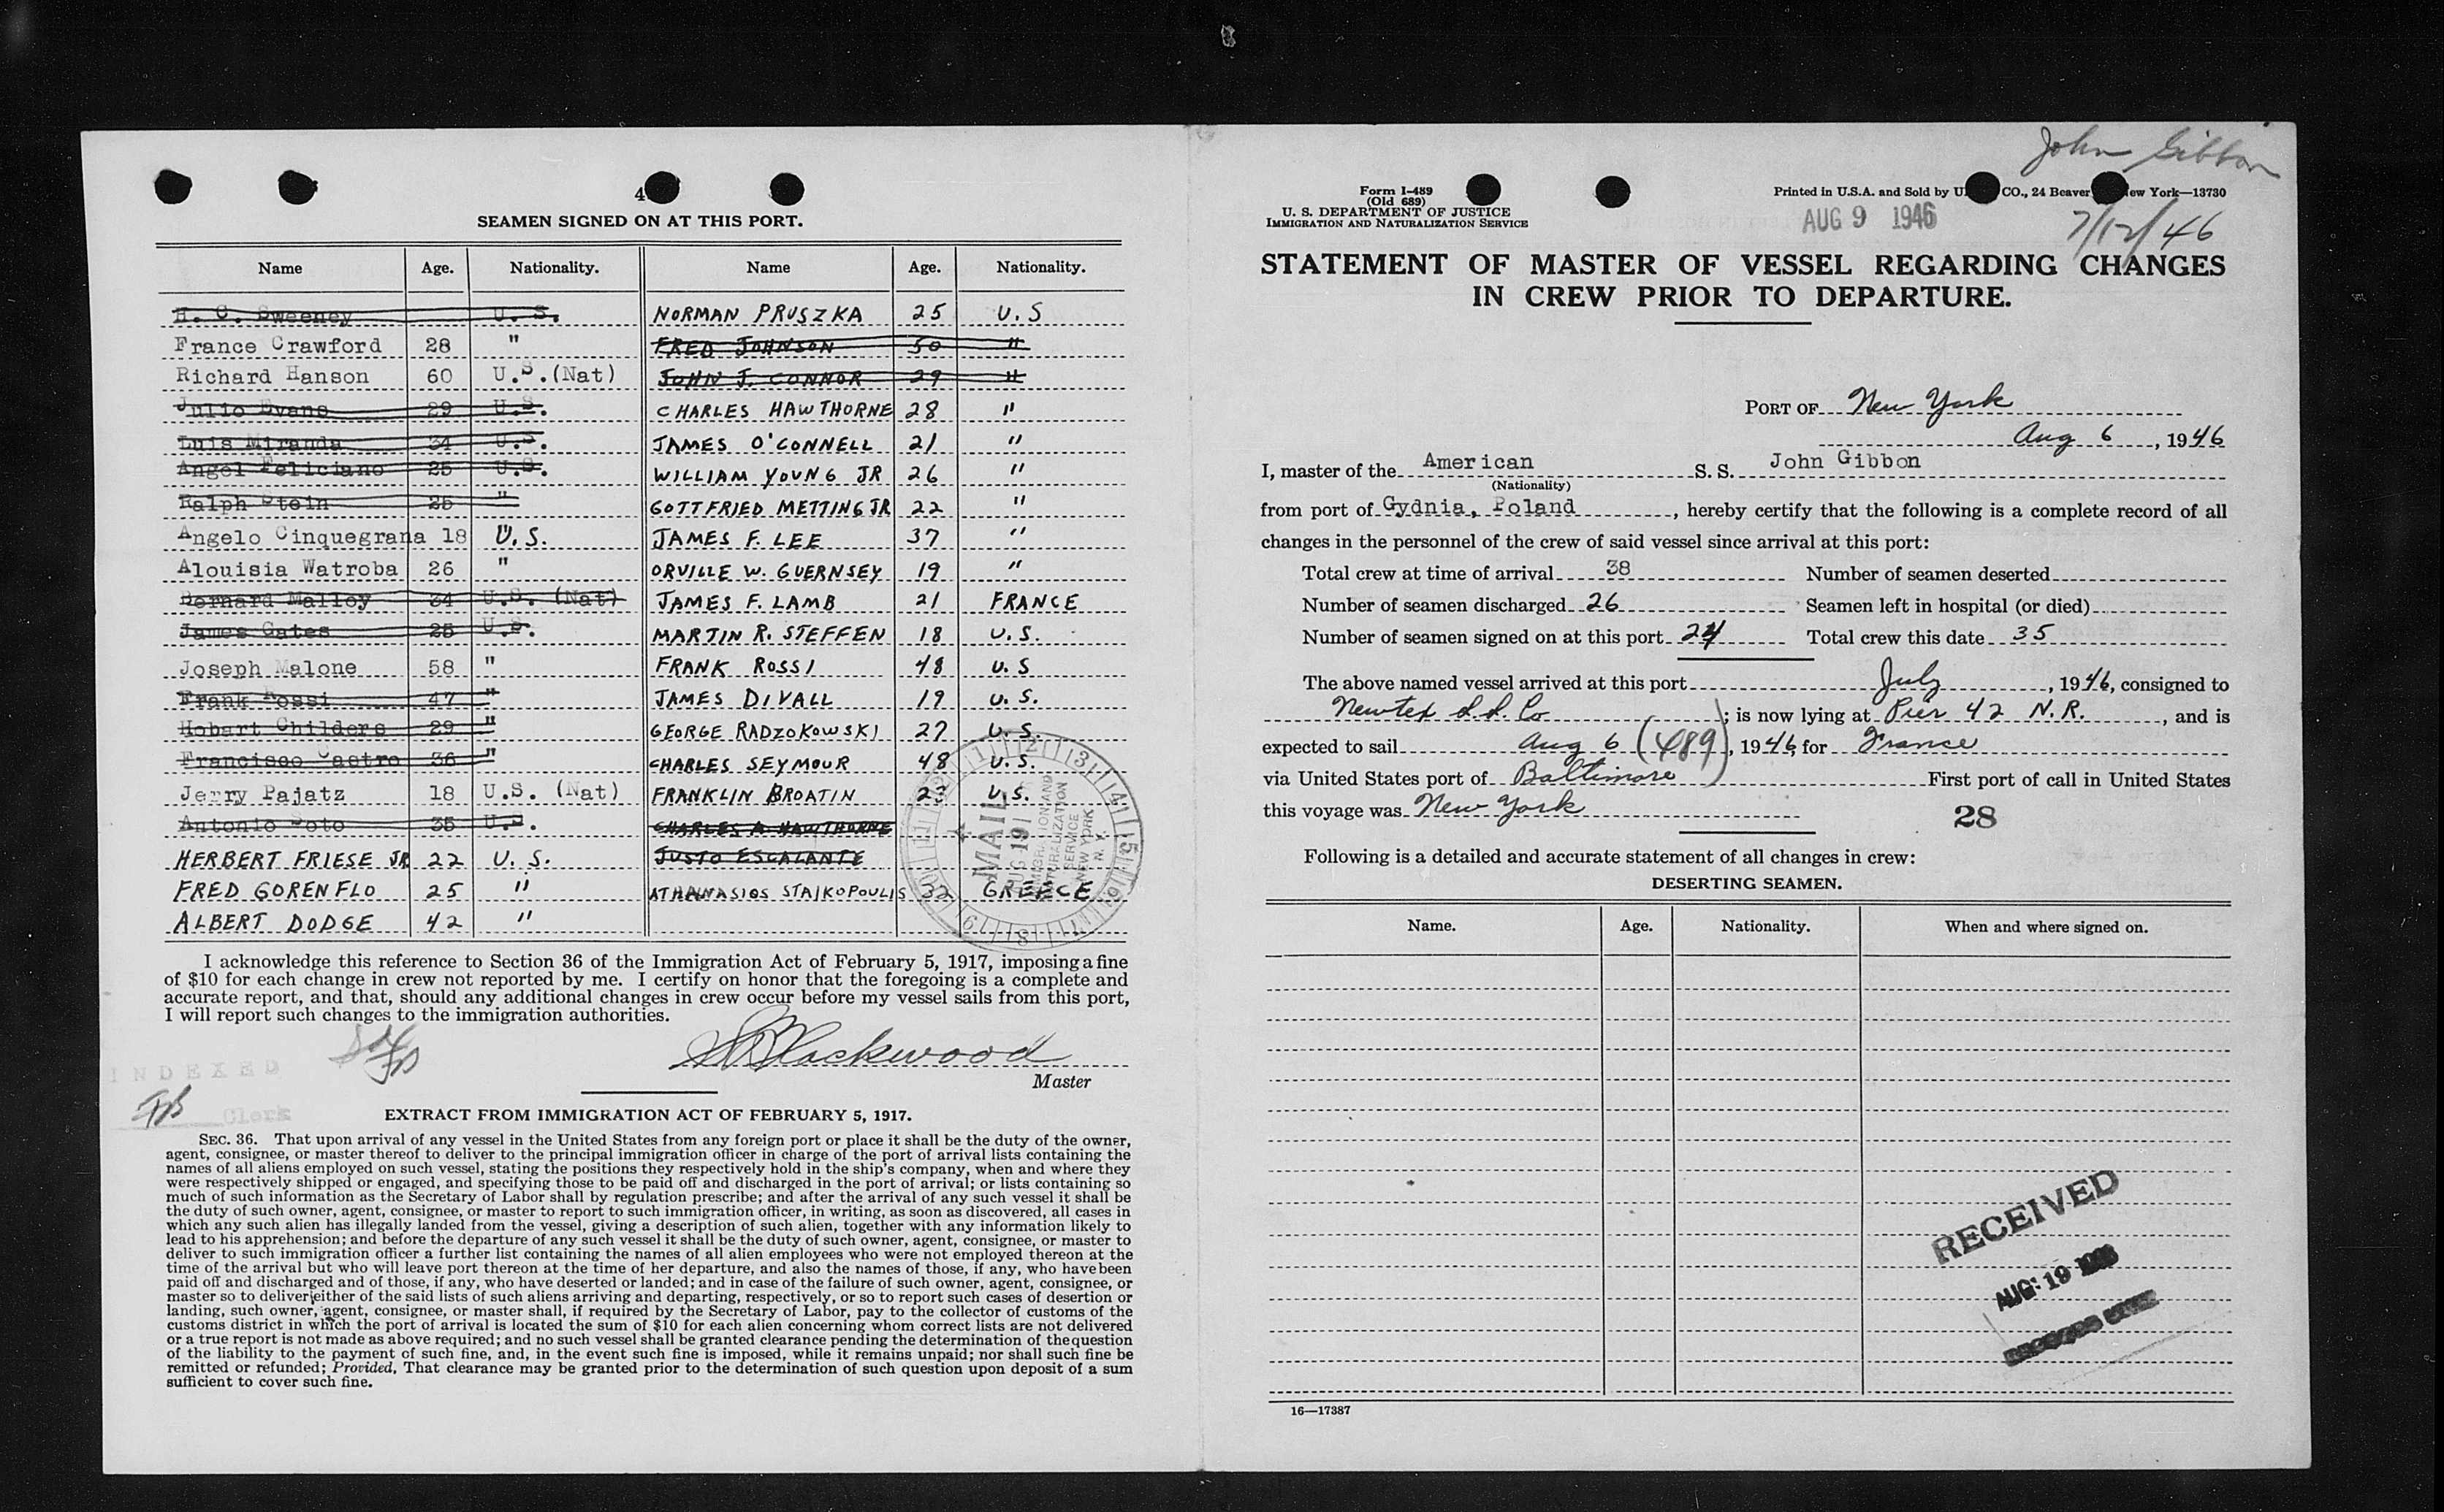 4
SEAMEN SIGNED ON AT THIS PORT.
Name Age. Nationality. Name Age. Nationality.
H. C. Sweeney U. S. NORMAN PRUSZKA 25 U.S
France Crawford 28 " FRED JOHNSON 50 "
Richard Hanson 60 U.S.(Nat) JOHN J. CONNOR 29 "
Julio Evans 29 U.S. CHARLES HAWTHORNE 28 "
Luis Miranda 34 U.S. JAMES O'CONNELL 21 "
Angel Feliciano 25 U.S. WILLIAM YOUNG JR 26 "
Ralph Stein 25 " GOTTFRIED METTING JR 22 "
Angelo Cinquegrana 18 U.S. JAMES F. LEE 37 "
Alouisia Watroba 26 " ORVILLE W. GUERNSEY 19 "
Bernard Malloy 34 U.S. (Nat) JAMES F. LAMB 21 FRANCE
James Gates 25 U.S. MARTIN R. STEFFEN 18 U.S.
Joseph Malone 58 " FRANK ROSSI 48 U.S
Frank Rossi 47 " JAMES DIVALL 19 U.S.
Hobart Childers 29 " GEORGE RADZOKOWSKI 27 U.S.
Francisco Castro 36 " CHARLES SEYMOUR 48 U.S.
Jerry Pajatz 18 U.S. (Nat) FRANKLIN BROATIN 23 U.S.
Antonio Soto 35 U.S. CHARLES A. HAWTHORNE
HERBERT FRIESE JR 22 U.S. JUSTO ESCALANTE
FRED GORENFLO 25 " ATHANASIOS STAIKOPOULIS 32 GREECE
ALBERT DODGE 42 "
MAIL
IMMIGRATION AND
NATURALIZATION
SERVICE
NEW YORK
N.Y.
I acknowledge this reference to Section 36 of the Immigration Act of February 5, 1917, imposing a fine
of $10 for each change in crew not reported by me. I certify on honor that the foregoing is a complete and
accurate report, and that, should any additional changes in crew occur before my vessel sails from this port,
I will report such changes to the immigration authorities.
Blackwood
Master
INDEXED
Clerk
EXTRACT FROM IMMIGRATION ACT OF FEBRUARY 5, 1917.
SEC. 36. That upon arrival of any vessel in the United States from any foreign port or place it shall be the duty of the owner,
agent, consignee, or master thereof to deliver to the principal immigration officer in charge of the port of arrival lists containing the
names of all aliens employed on such vessel, stating the positions they respectively hold in the ship's company, when and where they
were respectively shipped or engaged, and specifying those to be paid off and discharged in the port of arrival; or lists containing so
much of such information as the Secretary of Labor shall by regulation prescribe; and after the arrival of any such vessel it shall be
the duty of such owner, agent, consignee, or master to report to such immigration officer, in writing, as soon as discovered, all cases in
which any such alien has illegally landed from the vessel, giving a description of such alien, together with any information likely to
lead to his apprehension; and before the departure of any such vessel it shall be the duty of such owner, agent, consignee, or master to
deliver to such immigration officer a further list containing the names of all alien employees who were not employed thereon at the
time of the arrival but who will leave port thereon at the time of her departure, and also the names of those, if any, who have been
paid off and discharged and of those, if any, who have deserted or landed; and in case of the failure of such owner, agent, consignee, or
master so to deliver either of the said lists of such aliens arriving and departing, respectively, or so to report such cases of desertion or
landing, such owner, agent, consignee, or master shall, if required by the Secretary of Labor, pay to the collector of customs of the
customs district in which the port of arrival is located the sum of $10 for each alien concerning whom correct lists are not delivered
or a true report is not made as above required; and no such vessel shall be granted clearance pending the determination of the question
of the liability to the payment of such fine, and, in the event such fine is imposed, while it remains unpaid; nor shall such fine be
remitted or refunded; Provided, That clearance may be granted prior to the determination of such question upon deposit of a sum
sufficient to cover such fine.
John Gibbon
7/12/46
Form I-489
(Old 689)
U. S. DEPARTMENT OF JUSTICE
IMMIGRATION AND NATURALIZATION SERVICE
Printed in U.S.A. and Sold by U CO., 24 Beaver ew York—13730
AUG 9 1946
STATEMENT OF MASTER OF VESSEL REGARDING CHANGES
IN CREW PRIOR TO DEPARTURE.
PORT OF New York
Aug 6, 1946
I, master of the American S. S. John Gibbon
(Nationality)
from port of Gydnia, Poland, hereby certify that the following is a complete record of all
changes in the personnel of the crew of said vessel since arrival at this port:
Total crew at time of arrival 38 Number of seamen deserted
Number of seamen discharged 26 Seamen left in hospital (or died)
Number of seamen signed on at this port 24 Total crew this date 35
The above named vessel arrived at this port July, 1946, consigned to
Newtex S.S. Co; is now lying at Pier 42 N.R., and is
expected to sail Aug 6 (489), 1946, for France
via United States port of Baltimore First port of call in United States
this voyage was New York
28
Following is a detailed and accurate statement of all changes in crew:
DESERTING SEAMEN.
Name. Age. Nationality. When and where signed on.
RECEIVED
AUG 19 1946
16—17387